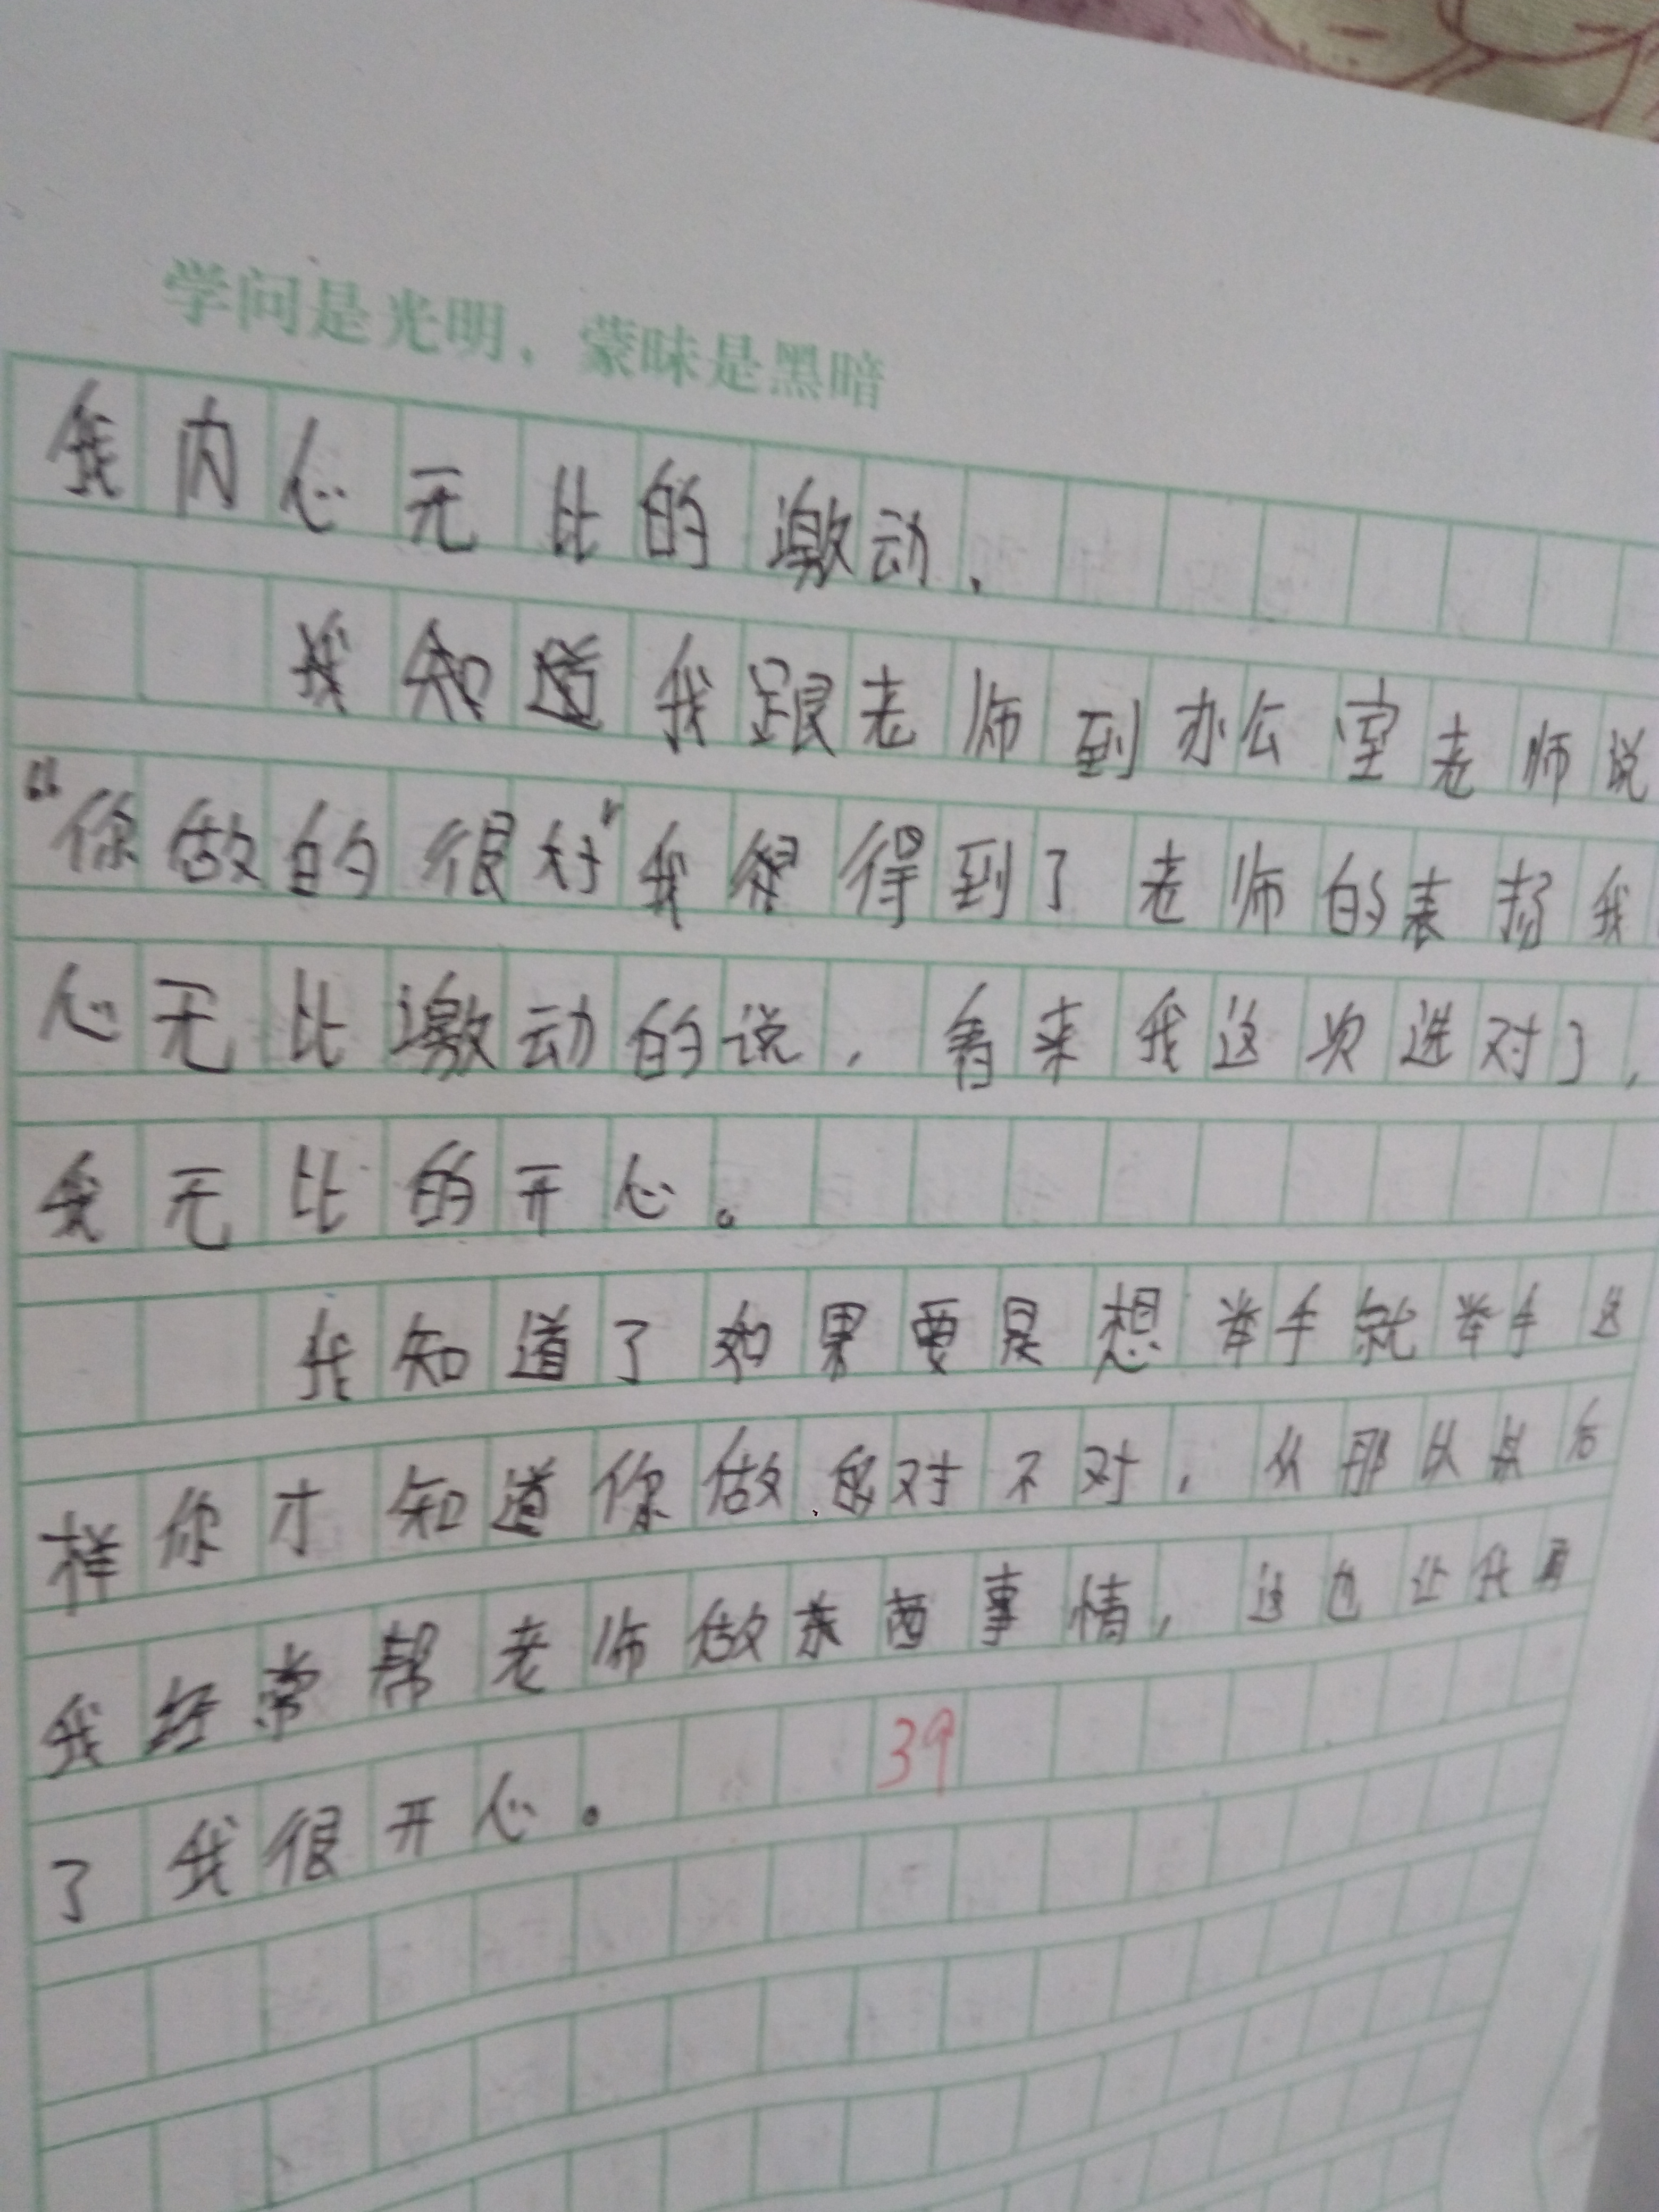 学问是光明，蒙昧是黑暗
我内心无比的激动，
我知道我跟老师到办公室老师说
“你做的很好”我很得到了老师的表扬我
心无比激动的说，看来我这次选对了，
我无比的开心。
我知道了如果要是想举手就举手这
样你才知道你做的对不对，从那以后
我经常帮老师做事情，这也让我
了我很开心。
39